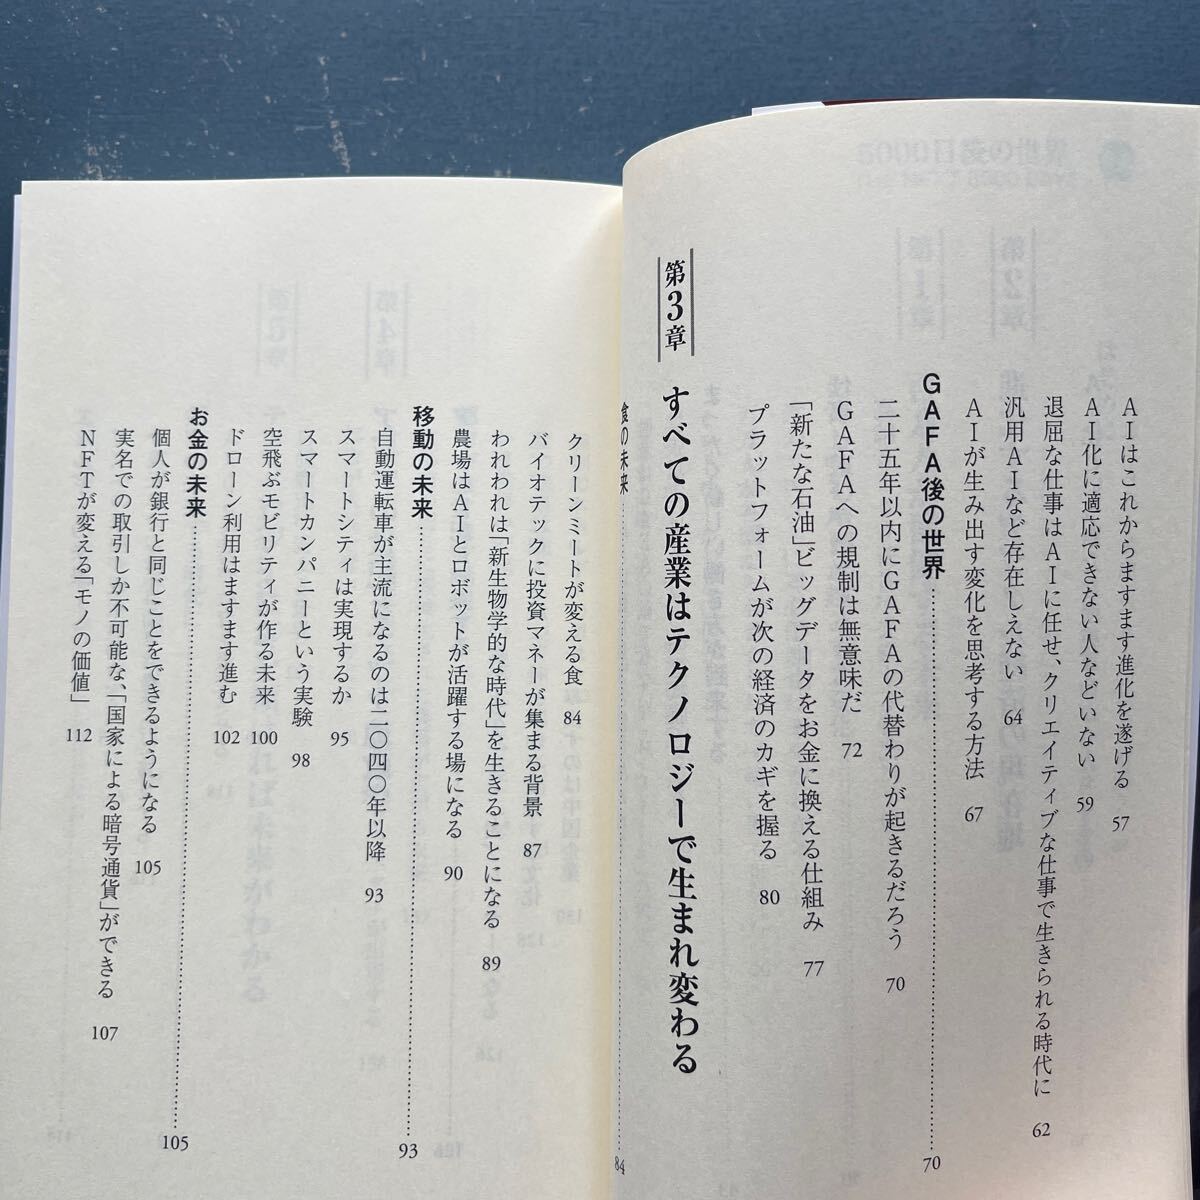 AIはこれからますます進化を遂げる 57
AI化に適応できない人などいない 59
退屈な仕事はAIに任せ、クリエイティブな仕事で生きられる時代に 62
汎用AIなど存在しえない 64
AIが生み出す変化を思考する方法 67
GAFA後の世界 70
二十五年以内にGAFAの代替わりが起きるだろう 70
GAFAへの規制は無意味だ 72
「新たな石油」ビッグデータをお金に換える仕組み 77
プラットフォームが次の経済のカギを握る 80
第3章 すべての産業はテクノロジーで生まれ変わる
食の未来 84
クリーンミートが変える食 84
バイオテックに投資マネーが集まる背景 87
われわれは「新生物学的な時代」を生きることになる 89
農場はAIとロボットが活躍する場になる 90
移動の未来 93
自動運転車が主流になるのは二〇四〇年以降 93
スマートシティは実現するか 95
スマートカンパニーという実験 98
空飛ぶモビリティが作る未来 100
ドローン利用はますます進む 102
お金の未来 105
個人が銀行と同じことをできるようになる 105
実名での取引しか不可能な、「国家による暗号通貨」ができる 107
NFTが変える「モノの価値」 112